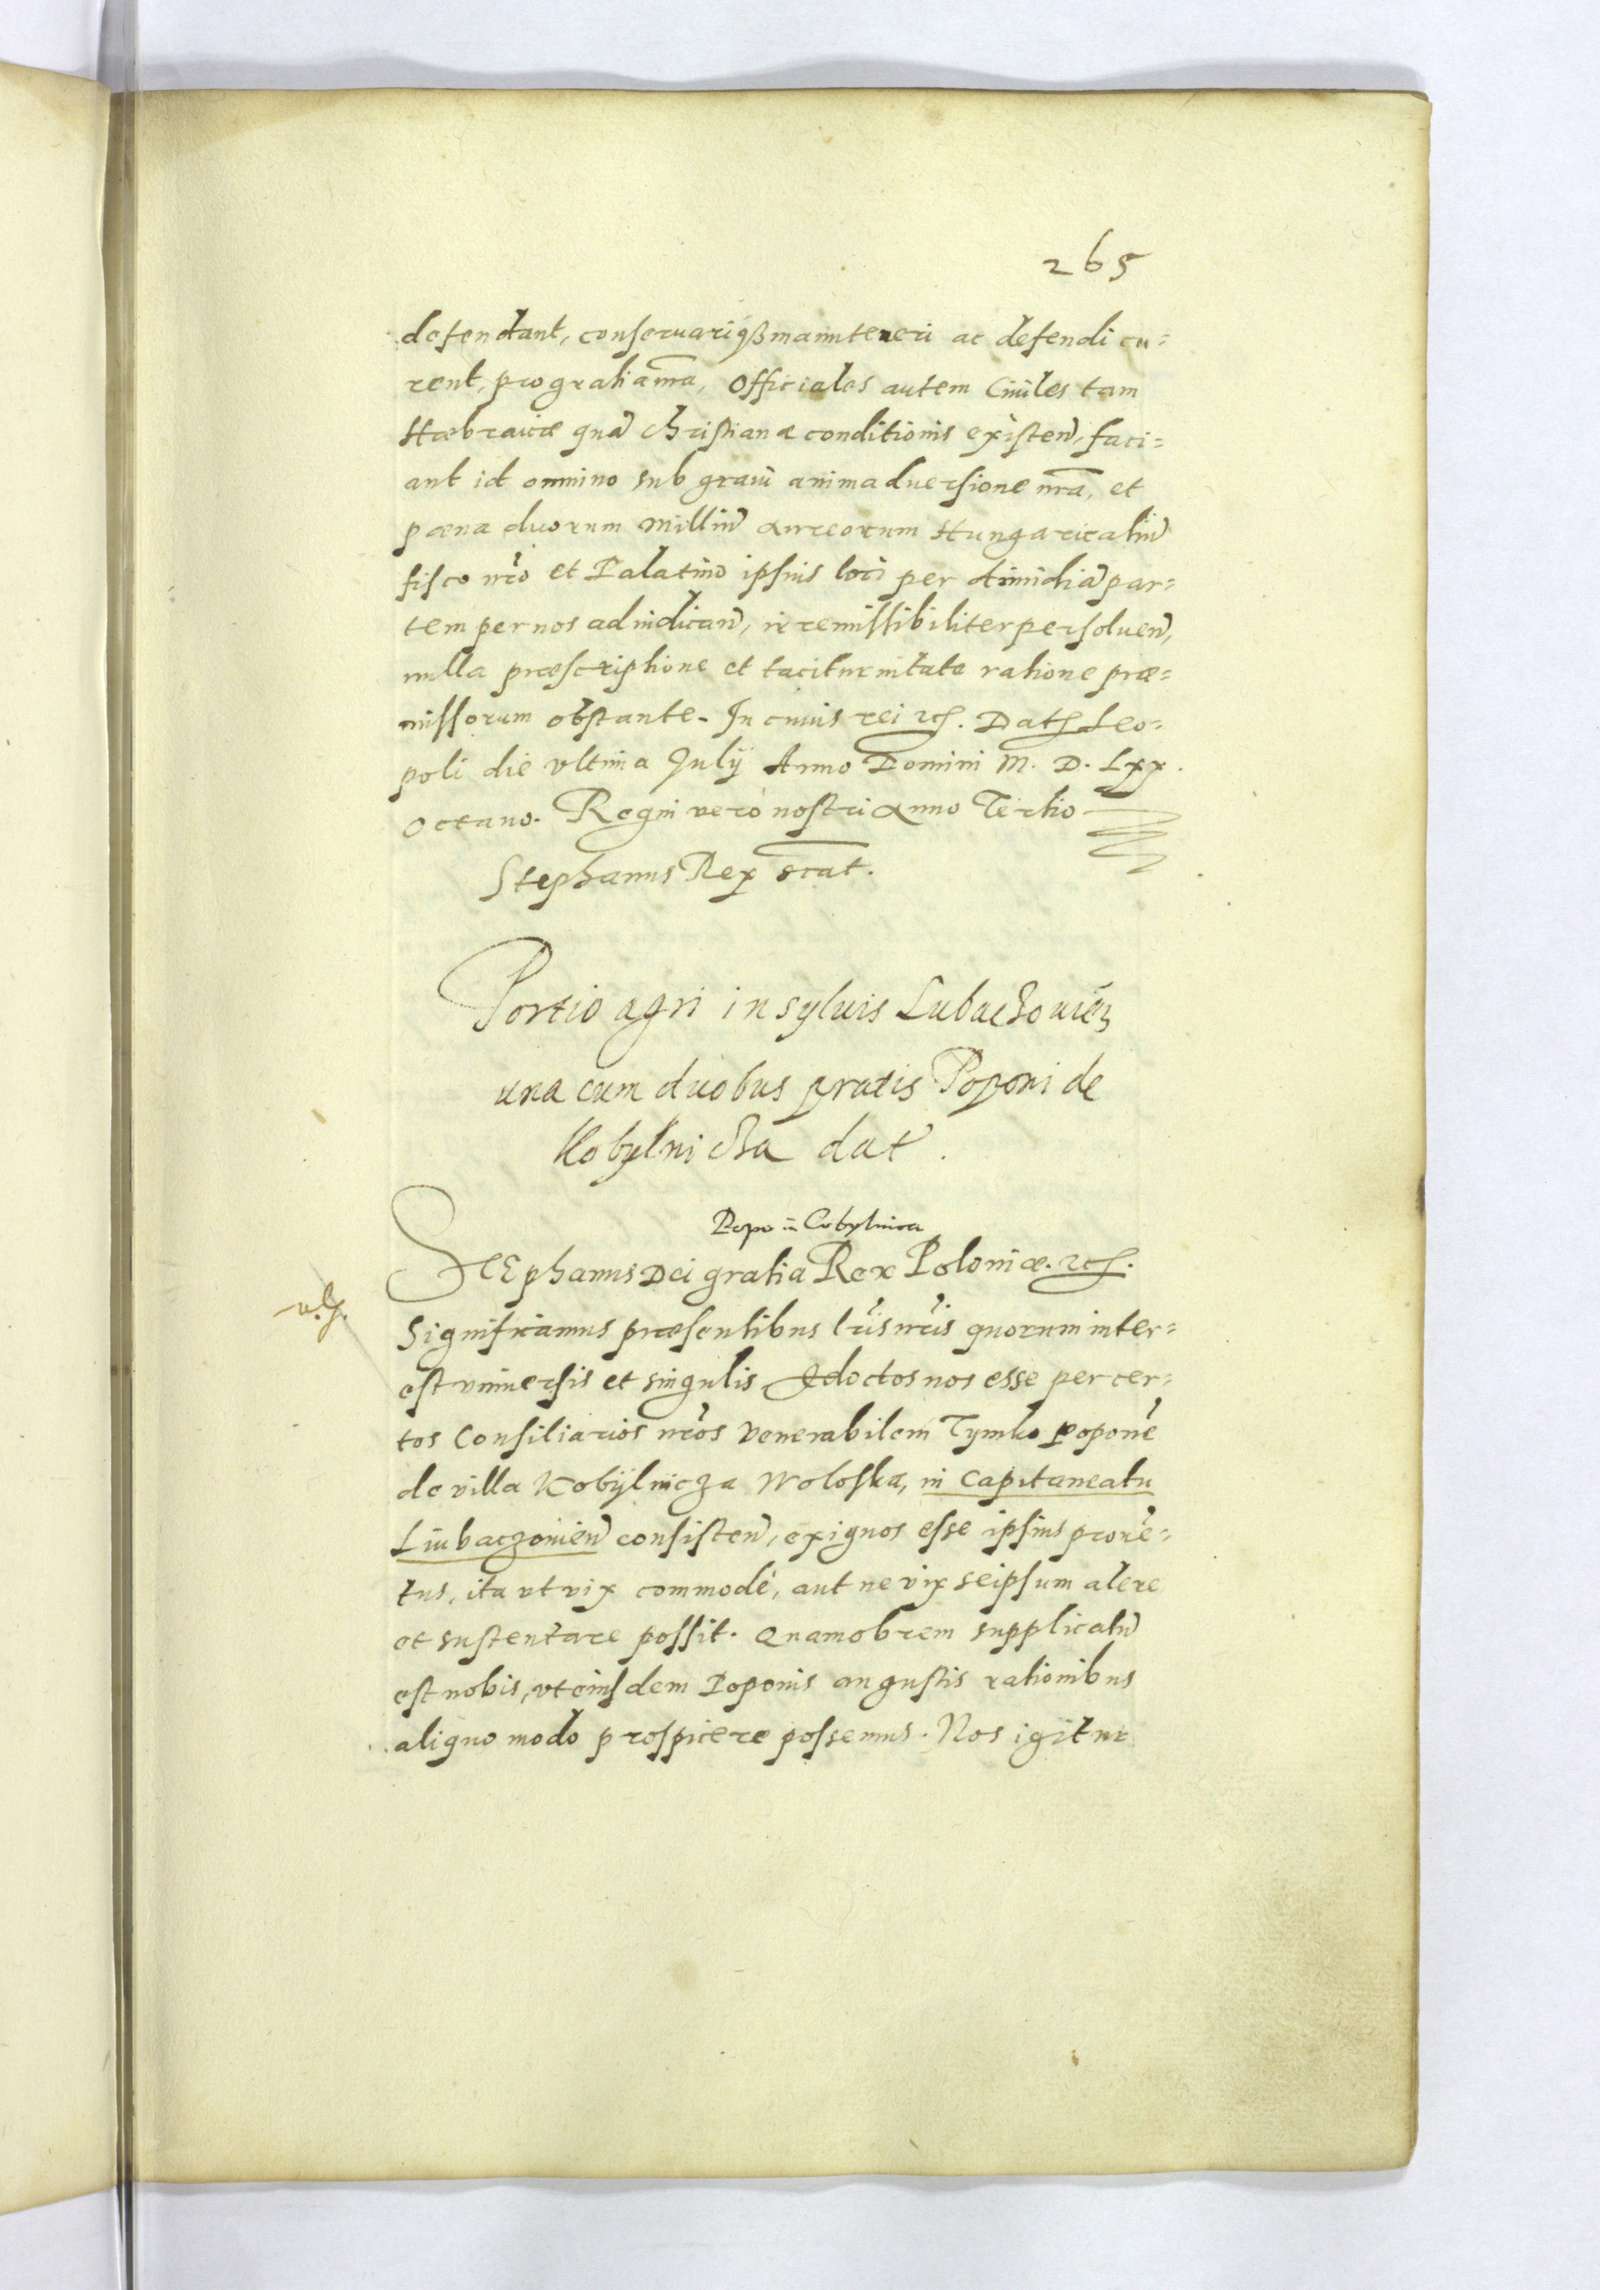 265
defendant, conseruariq₃ manuteneri ac defendi cu=
rent, pro gratia nr̃a, Officiales autem Ciuiles tam
Hæbraicæ quã Christianæ conditionis existeñ, faci=
ant id omnino sub graui animaduersione nr̃a, et
pæna duorum milliũ Aureorum Hungaricaliũ
fisco nr̃o et Palatino ipsius loci per dimidiã par=
tem per nos adiudicañ, irremissibiliter persolueñ,
nulla præscriptione et taciturnitate ratione præ=
missorum obstante. In cuius rei etc. Dat Leo=
poli die vltima Julij Anno Domini M. D. Lxx.
Octauo. Regni vero nostri Anno Tertio
Stephanus Rex sc̃at.
Portio agri in syluis Lubachouieñ
una cum duobus pratis Poponi de
Kobylnicha dat.
Popo in Cobylnica
STEphanus Dei gratia Rex Poloniæ. etc.
v. g.
Significamus præsentibus lr̃is nr̃is quorum inter=
est vniuersis et singulis Edoctos nos esse per cer=
tos Consiliarios nr̃os Venerabilem Tymko poponẽ
de villa Kobÿlnicza Woloska, in Capitaneatu
Liubaczouieñ consisteñ, exiguos esse ipsius prouẽ=
tus, ita vt vix commodè, aut ne vix seipsum alere
et sustentare possit. Quamobrem supplicatũ
est nobis, vt eiusdem Poponis angustis rationibus
aliquo modo prospicere possemus. Nos igitur